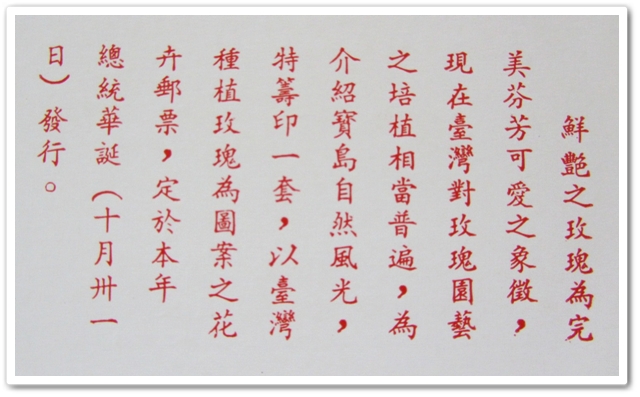 鮮艷之玫瑰為完
美芬芳可愛之象徵，
現在臺灣對玫瑰園藝
之培植相當普遍，為
介紹寶島自然風光，
特籌印一套，以臺灣
種植玫瑰為圖案之花
卉郵票，定於本年
總統華誕（十月卅一
日）發行。